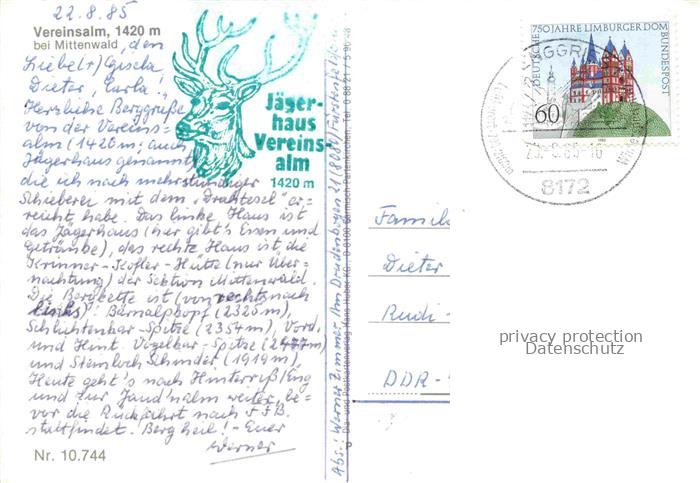 22.8.85
Vereinsalm, 1420 m
bei Mittenwald, den
Liebe(r) Gisela,
Dieter, Carla!,
Herzliche Berggrüße
von der Vereins-
alm (1420 m; auch
Jägerhaus genannt,
die ich nach mehrstündiger
Schieberei mit dem „Drahtesel" er-
reicht habe. Das linke Haus ist
das Jägerhaus (hier gibt's Essen und
Getränke), das rechte Haus ist die
Krinner-Kofler-Hütte (nur Über-
nachtung) der Sektion Mittenwald.
Die Bergkette ist (von rechts nach
links): Bärnalpkopf (2325 m),
Schlichtenkar-Spitze (2354 m), Vord.
und Hint. Vogelkar-Spitze
und Steinloch (1919 m),
Heute geht's nach Hinterriß/Eng
und zur Jaud'nalm weiter, be-
vor die Rückfahrt nach F.F.B.
stattfindet. Berg heil! - Euer
Werner
Nr. 10.744
Jäger-
haus
Vereins-
alm
1420 m
Abs.: Werner Zimmer, Am
750 JAHRE LIMBURGER DOM
DEUTSCHE BUNDESPOST
60
LENGGRIES
8172
Familie
Dieter
Rudi-
DDR-
privacy protection
Datenschutz